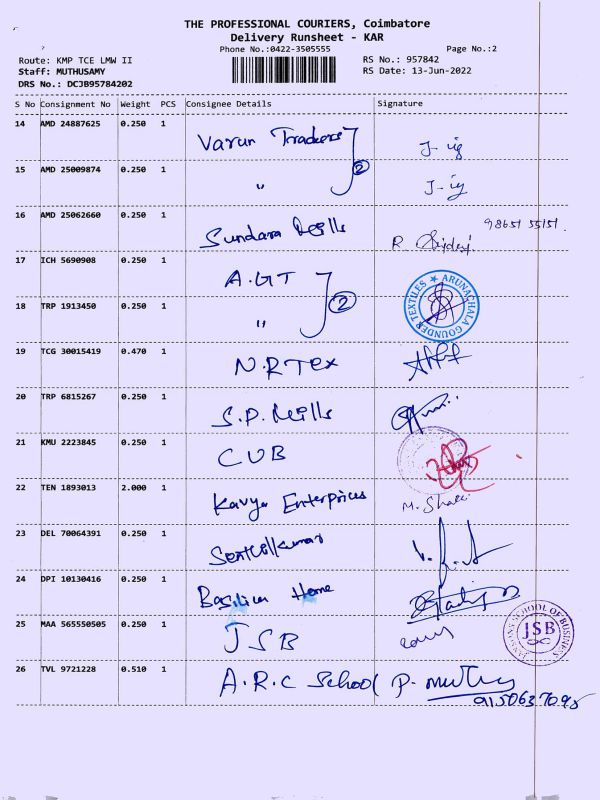 THE PROFESSIONAL COURIERS, Coimbatore
Delivery Runsheet - KAR
Phone No.:0422-3505555 Page No.:2
Route: KMP TCE LMW II RS No.: 957842
Staff: MUTHUSAMY RS Date: 13-Jun-2022
DRS No.: DCJB95784202
S No Consignment No Weight PCS Consignee Details Signature
14 AMD 24887625 0.250 1 Varun Traders
15 AMD 25009874 0.250 1 " 2
16 AMD 25062660 0.250 1 Sundara Mills R 98651 55151
17 ICH 5690908 0.250 1 A.GT
18 TRP 1913450 0.250 1 " 2 ARUNACHALA GOUNDER TEXTILES
19 TCG 30015419 0.470 1 N.R Tex
20 TRP 6815267 0.250 1 S.P. Mills
21 KMU 2223845 0.250 1 CUB
22 TEN 1893013 2.000 1 Kavya Enterprices M.
23 DEL 70064391 0.250 1 Senthilkumar
24 DPI 10130416 0.250 1 Basilica Home
25 MAA 565550505 0.250 1 JSB JANSONS SCHOOL OF BUSINESS JSB
26 TVL 9721228 0.510 1 A.R.C School P.
9150637095